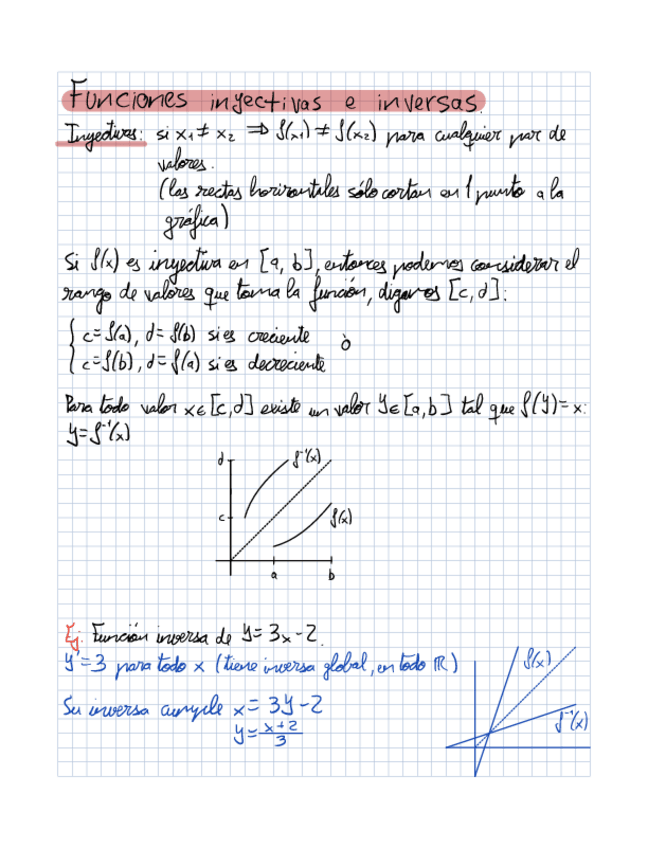 Funciones inyectivas e inversas.
Inyectivas: si x₁ ≠ x₂ ⇒ f(x₁) ≠ f(x₂) para cualquier par de
valores.
(las rectas horizontales sólo cortan en 1 punto a la
gráfica)
Si f(x) es inyectiva en [a, b], entonces podemos considerar el
rango de valores que toma la función, digamos [c, d]:
{ c = f(a), d = f(b) si es creciente ò
{ c = f(b), d = f(a) si es decreciente
Para todo valor x ∈ [c, d] existe un valor y ∈ [a, b] tal que f(y) = x:
y = f⁻¹(x)
d
f⁻¹(x)
c
f(x)
a b
Ej: Función inversa de y = 3x - 2.
y' = 3 para todo x (tiene inversa global, en todo ℝ)
Su inversa cumple x = 3y - 2
y = (x + 2)/3
f(x)
f⁻¹(x)